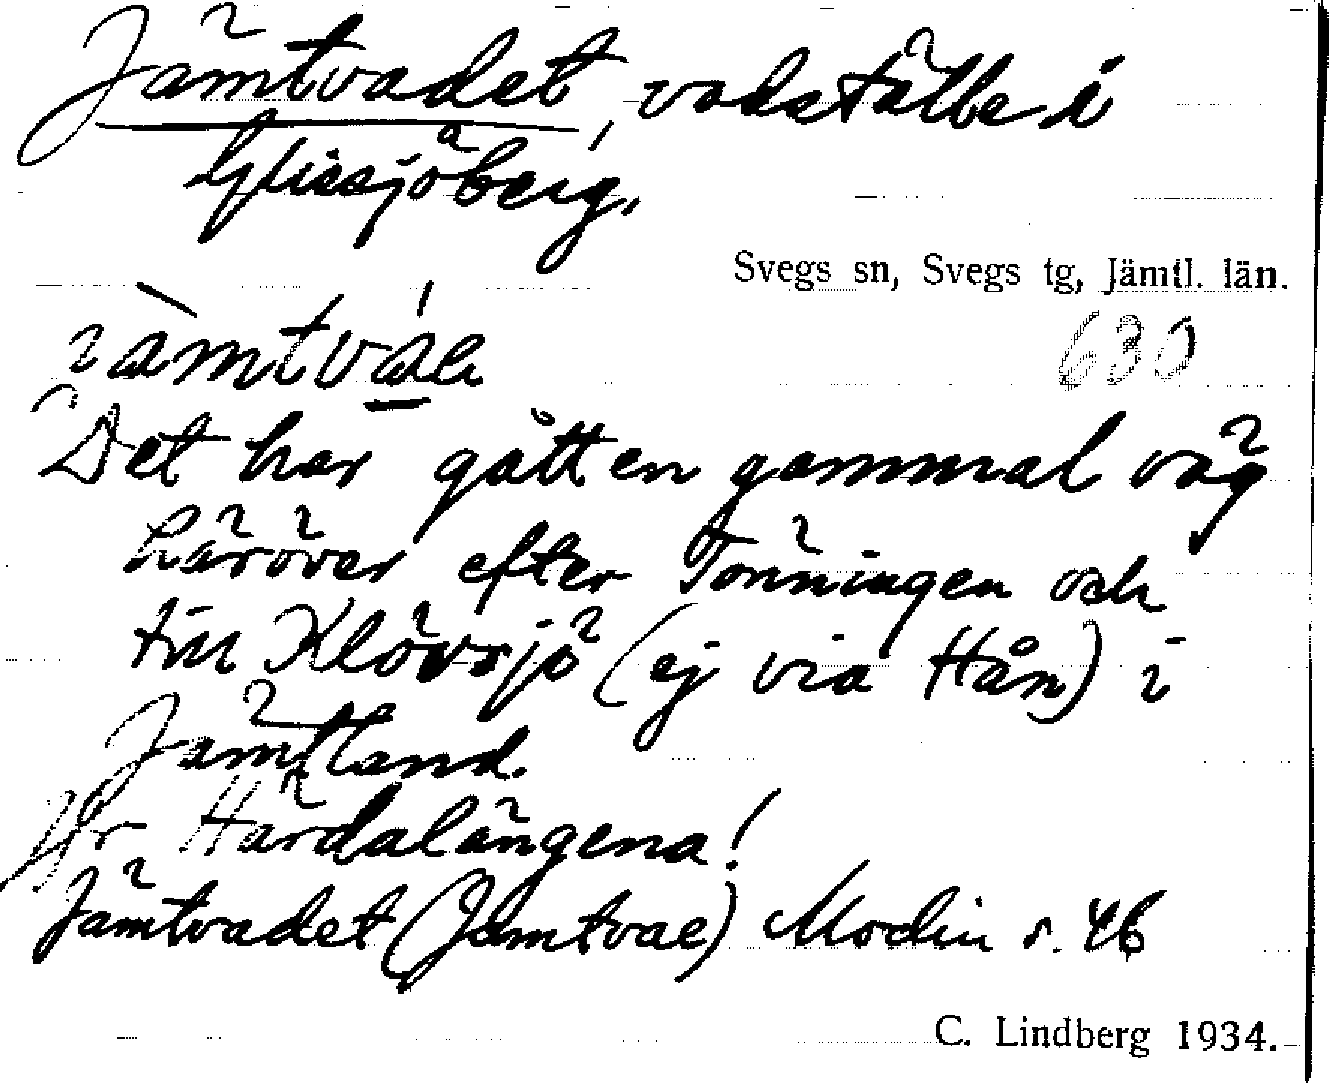 Jämtvadet, vadställe i
Glissjöberg.
Svegs sn, Svegs tg, Jämtl. län.
630
Det har gått en gammal väg
häröver efter Tonningen och
till Klövsjö (ej via Hån) i
Jämtland.
Jfr Härdalängena!
Jämtvadet (Jämtvae) Modin s. 46
C. Lindberg 1934.